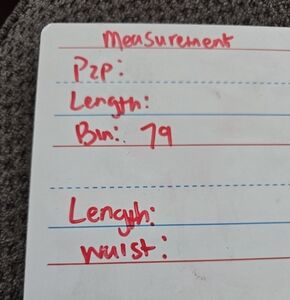 Measurement
P2P:
Length:
Bin: 79
Length:
Waist: